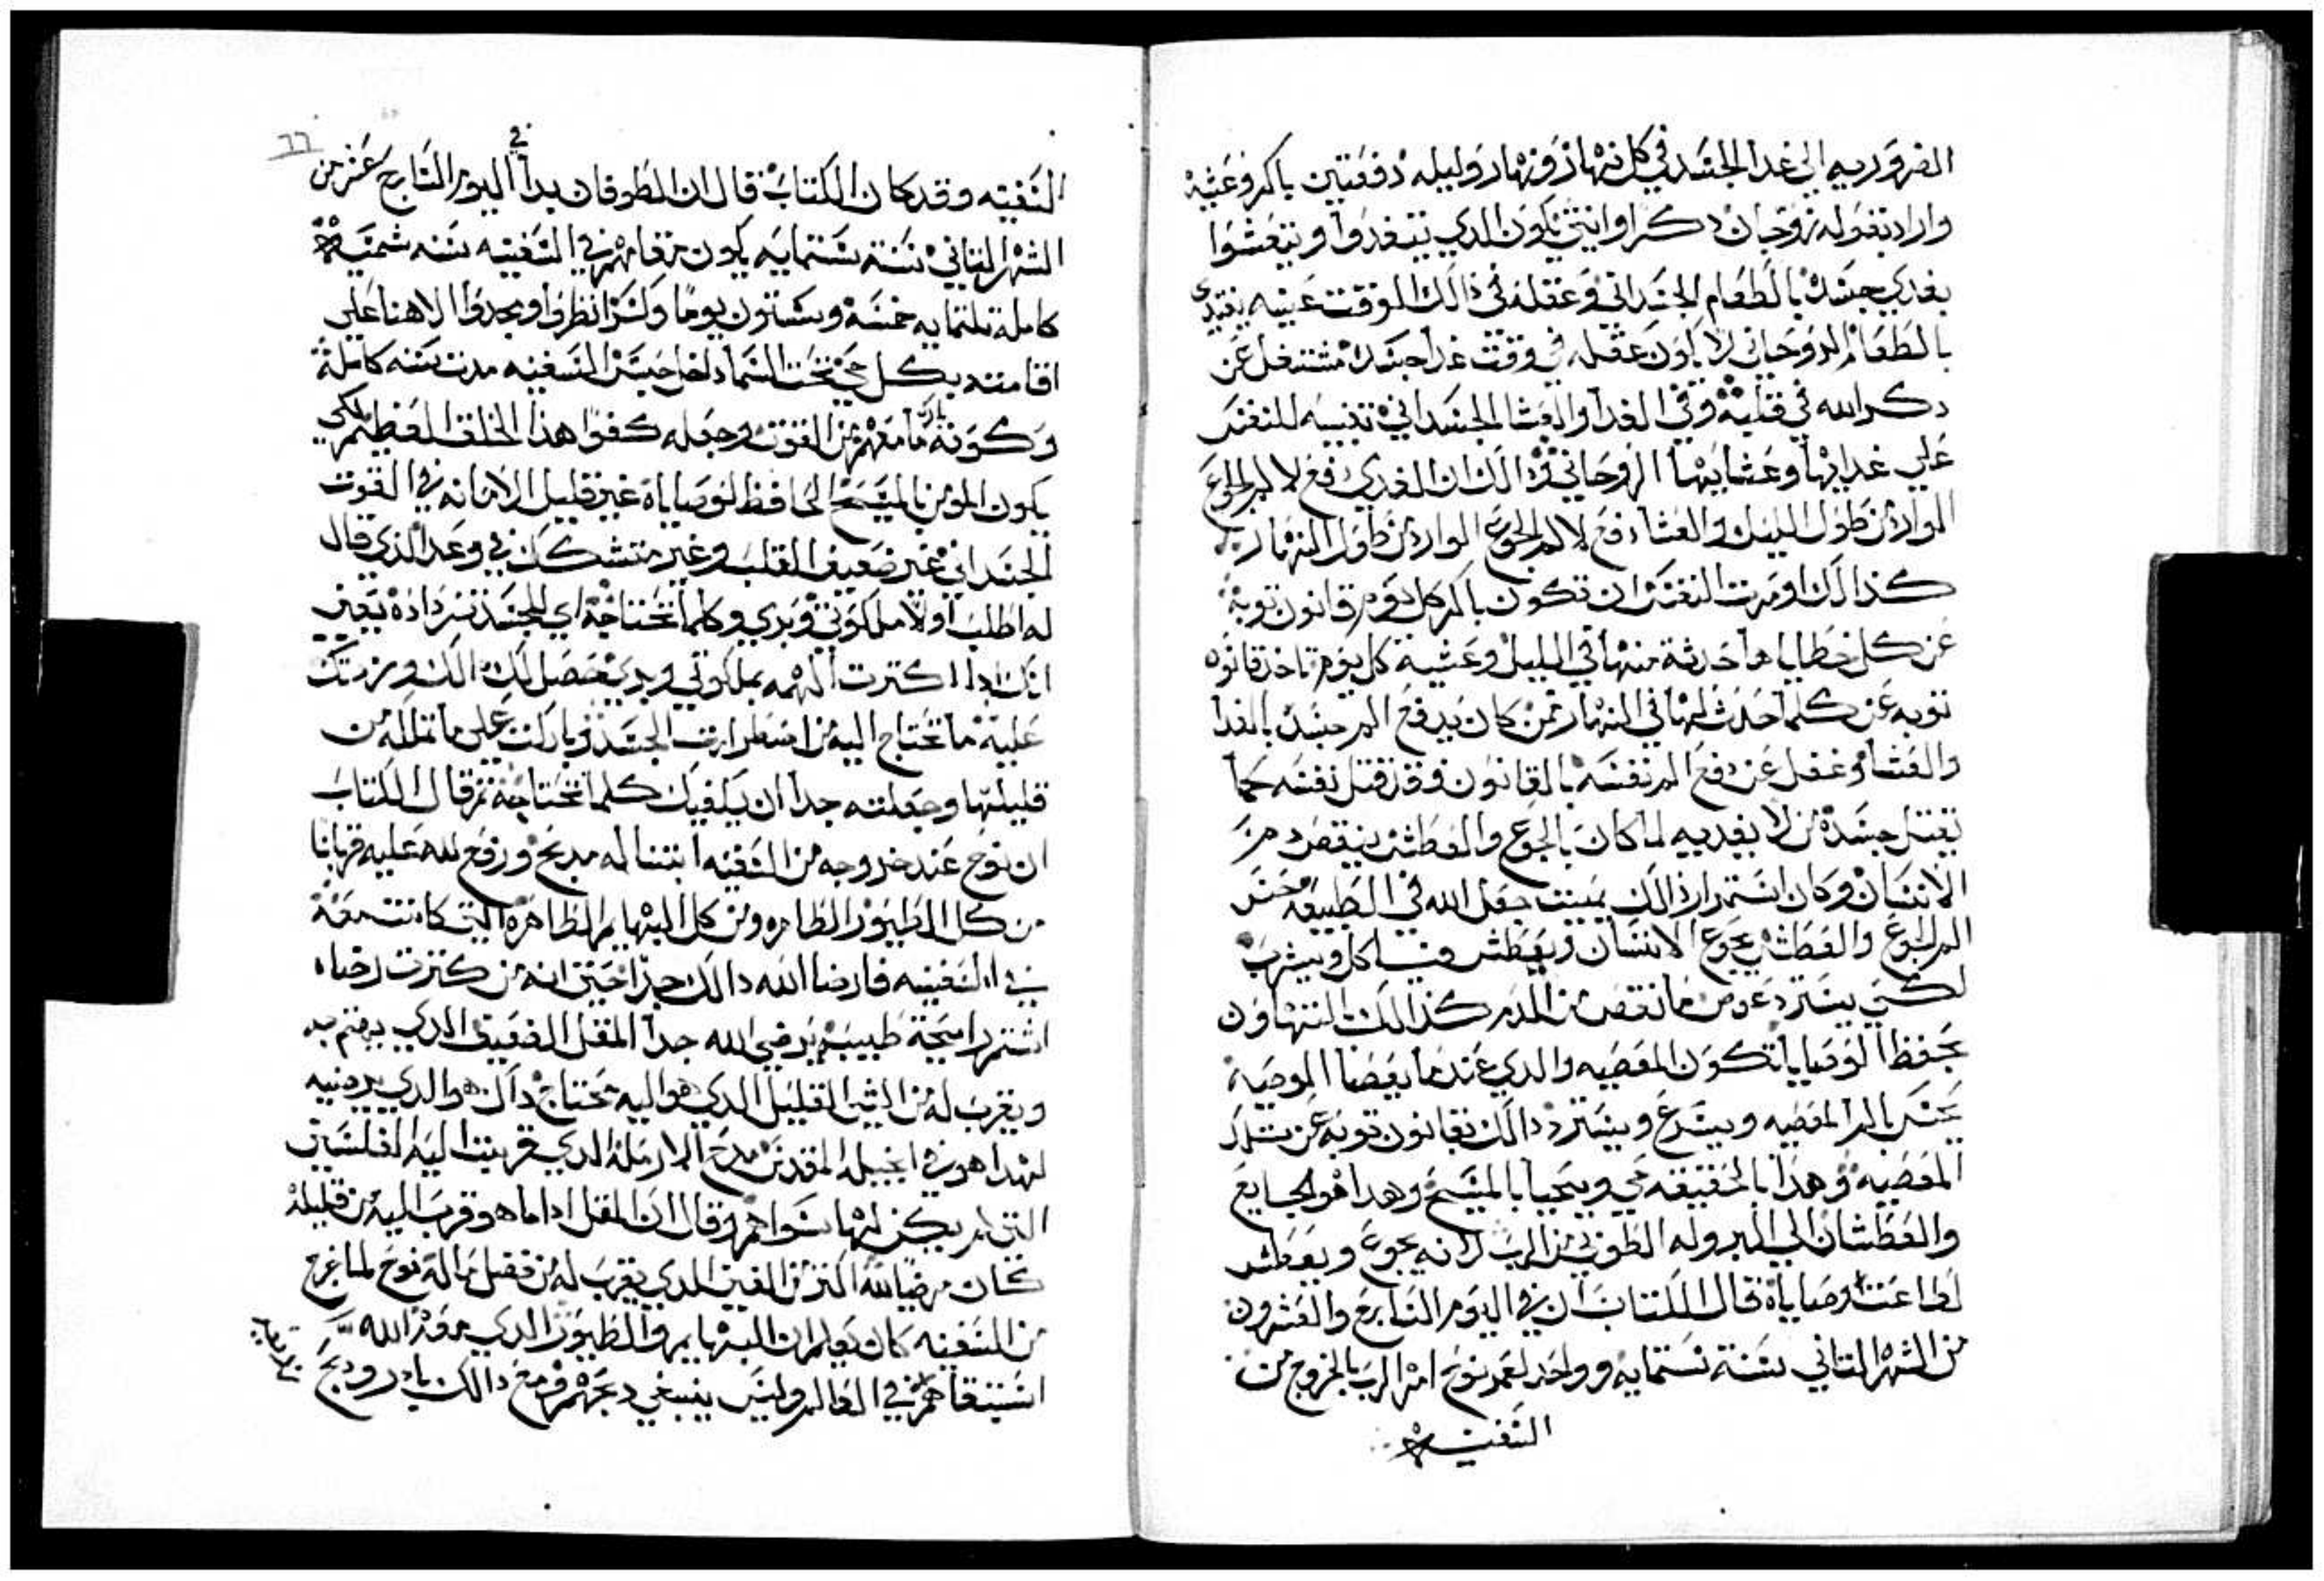 الضروريه الي غدا الجسد في كل نهار ونهار وليله دفعتين باكر وعشيه
واراد بقوله زوجان دكر اوانتي يكون الدي يتغدوا ويتعشوا
يغدي جسده بالطعام الجسداني وعقله في ذالك الوقت عينه يغتدي
بالطعام الروحاني لا يكون عقله في وقت غدا جسده مشتغل عن
دكر الله في قلبه وفي الغدا والعشا الجسداني تنبيه للنفس
علي غدايها وعشايها الروحاني وذالك ان الغدا يدفع الم الجوع
الوارد من طول الليل والعشا دفع لالم الجوع الوارد من طول النهار
كذالك اومرت النفس ان تكون باكر كل يوم قانون توبه
عن كل خطاياها حدثة منها في الليل وعشية كل يوم تاخد قانون
توبه عن كلما حدث لها في النهار فمن كان يدفع الم جسده بالغدا
والعشا وغفل عن دفع الم نفسه بالقانون فقد قتل نفسه كما
يقتل جسده من لا يغديه لما كان بالجوع والعطش ينقص دم من
الانسان وكان استمرار ذالك يميت جعل الله في الطبيعه حس
الم الجوع والعطش يجوع الانسان ويعطش فياكل ويشرب
لكي يسترد عوض ما نقص من الدم كذالك بالتهاون
بحفظ الوصايا تكون المعصيه والدي عندما يعصا الوصيه
يحس بالم المعصيه ويسرع ويسترد ذالك بقانون توبه عن تلك
المعصيه وهذا بالحقيقه حي ويحيا بالمسيح وهدا هو الجايع
والعطشان الي البر وله الطوبي من الرب لانه يجوع ويعطش
لطاعت وصاياه قال الكتاب ان في اليوم السابع والعشرون
من الشهر التاني سنة ستمايه وواحد لعمر نوح امر الرب بالخروج من
السفينه
السفينه وقد كان الكتاب قال ان الطوفان بدا في اليوم السابع عشر من
الشهر التاني سنة ستمايه يكون مقامهم في السفينه سنه شمسيه
كاملة تلتمايه خمسه وستون يوما ولسرا نظروا ويجدوا الاهنا علي
اقامته بكل حي تحت السما داخل حبس السفينه مدت سنه كاملة
وكونه بارك ما معهم من القوت وجعله كفوا هذا الخلق العظيم لكي
يكون المومن بالمسيح الحافظ لوصاياه غير قليل الامانه في القوت
الجسداني غير ضعيف القلب وغير متشكك في وعد الذي قال
له اطلب اولا ملكوتي وبري وكلما تحتاجه اي للجسد تزداده يعني
انك ادا اكترت الهمه بملكوتي وبري يحصل لك دالك وزدتك
عليه ما تحتاج اليه من اضطرارت الجسد وباركت علي ما تملكه من
قليلها وجعلته جدا ان يكفيك كلما تحتاجه تم قال الكتاب
ان نوح عند خروجه من السفينه ابتنا له مدبح ورفع لله عليه قربانا
من كل الطيور الطاهره ومن كل البهايم الطاهره التي كانت معه
في السفينه فارضا الله دالك جدا حتي انه من كترت رضاه
اشتم رايحة طيبه يرضي الله جدا المقل الضعيف الدي يهتم به
ويقرب له من الشي القليل الدي هو اليه محتاج داك هو الدي يرضيه
لهدا هو في انجيله المقدس مدح الارمله الدي قربت اليه الفلسين
التي لم يكن لها سواهم وقال ان المقل اداما هو قرب اليه من قليله
كان مرضيا لله اكتر من الغني الدي يقرب له من فضل ماله نوح لما خرج
من السفينه كان يعلم ان البهايم والطيور الدي معه الله
استبقاهم في العالم وليس ينبغي دبحهم ومع دالك بادر ودبح